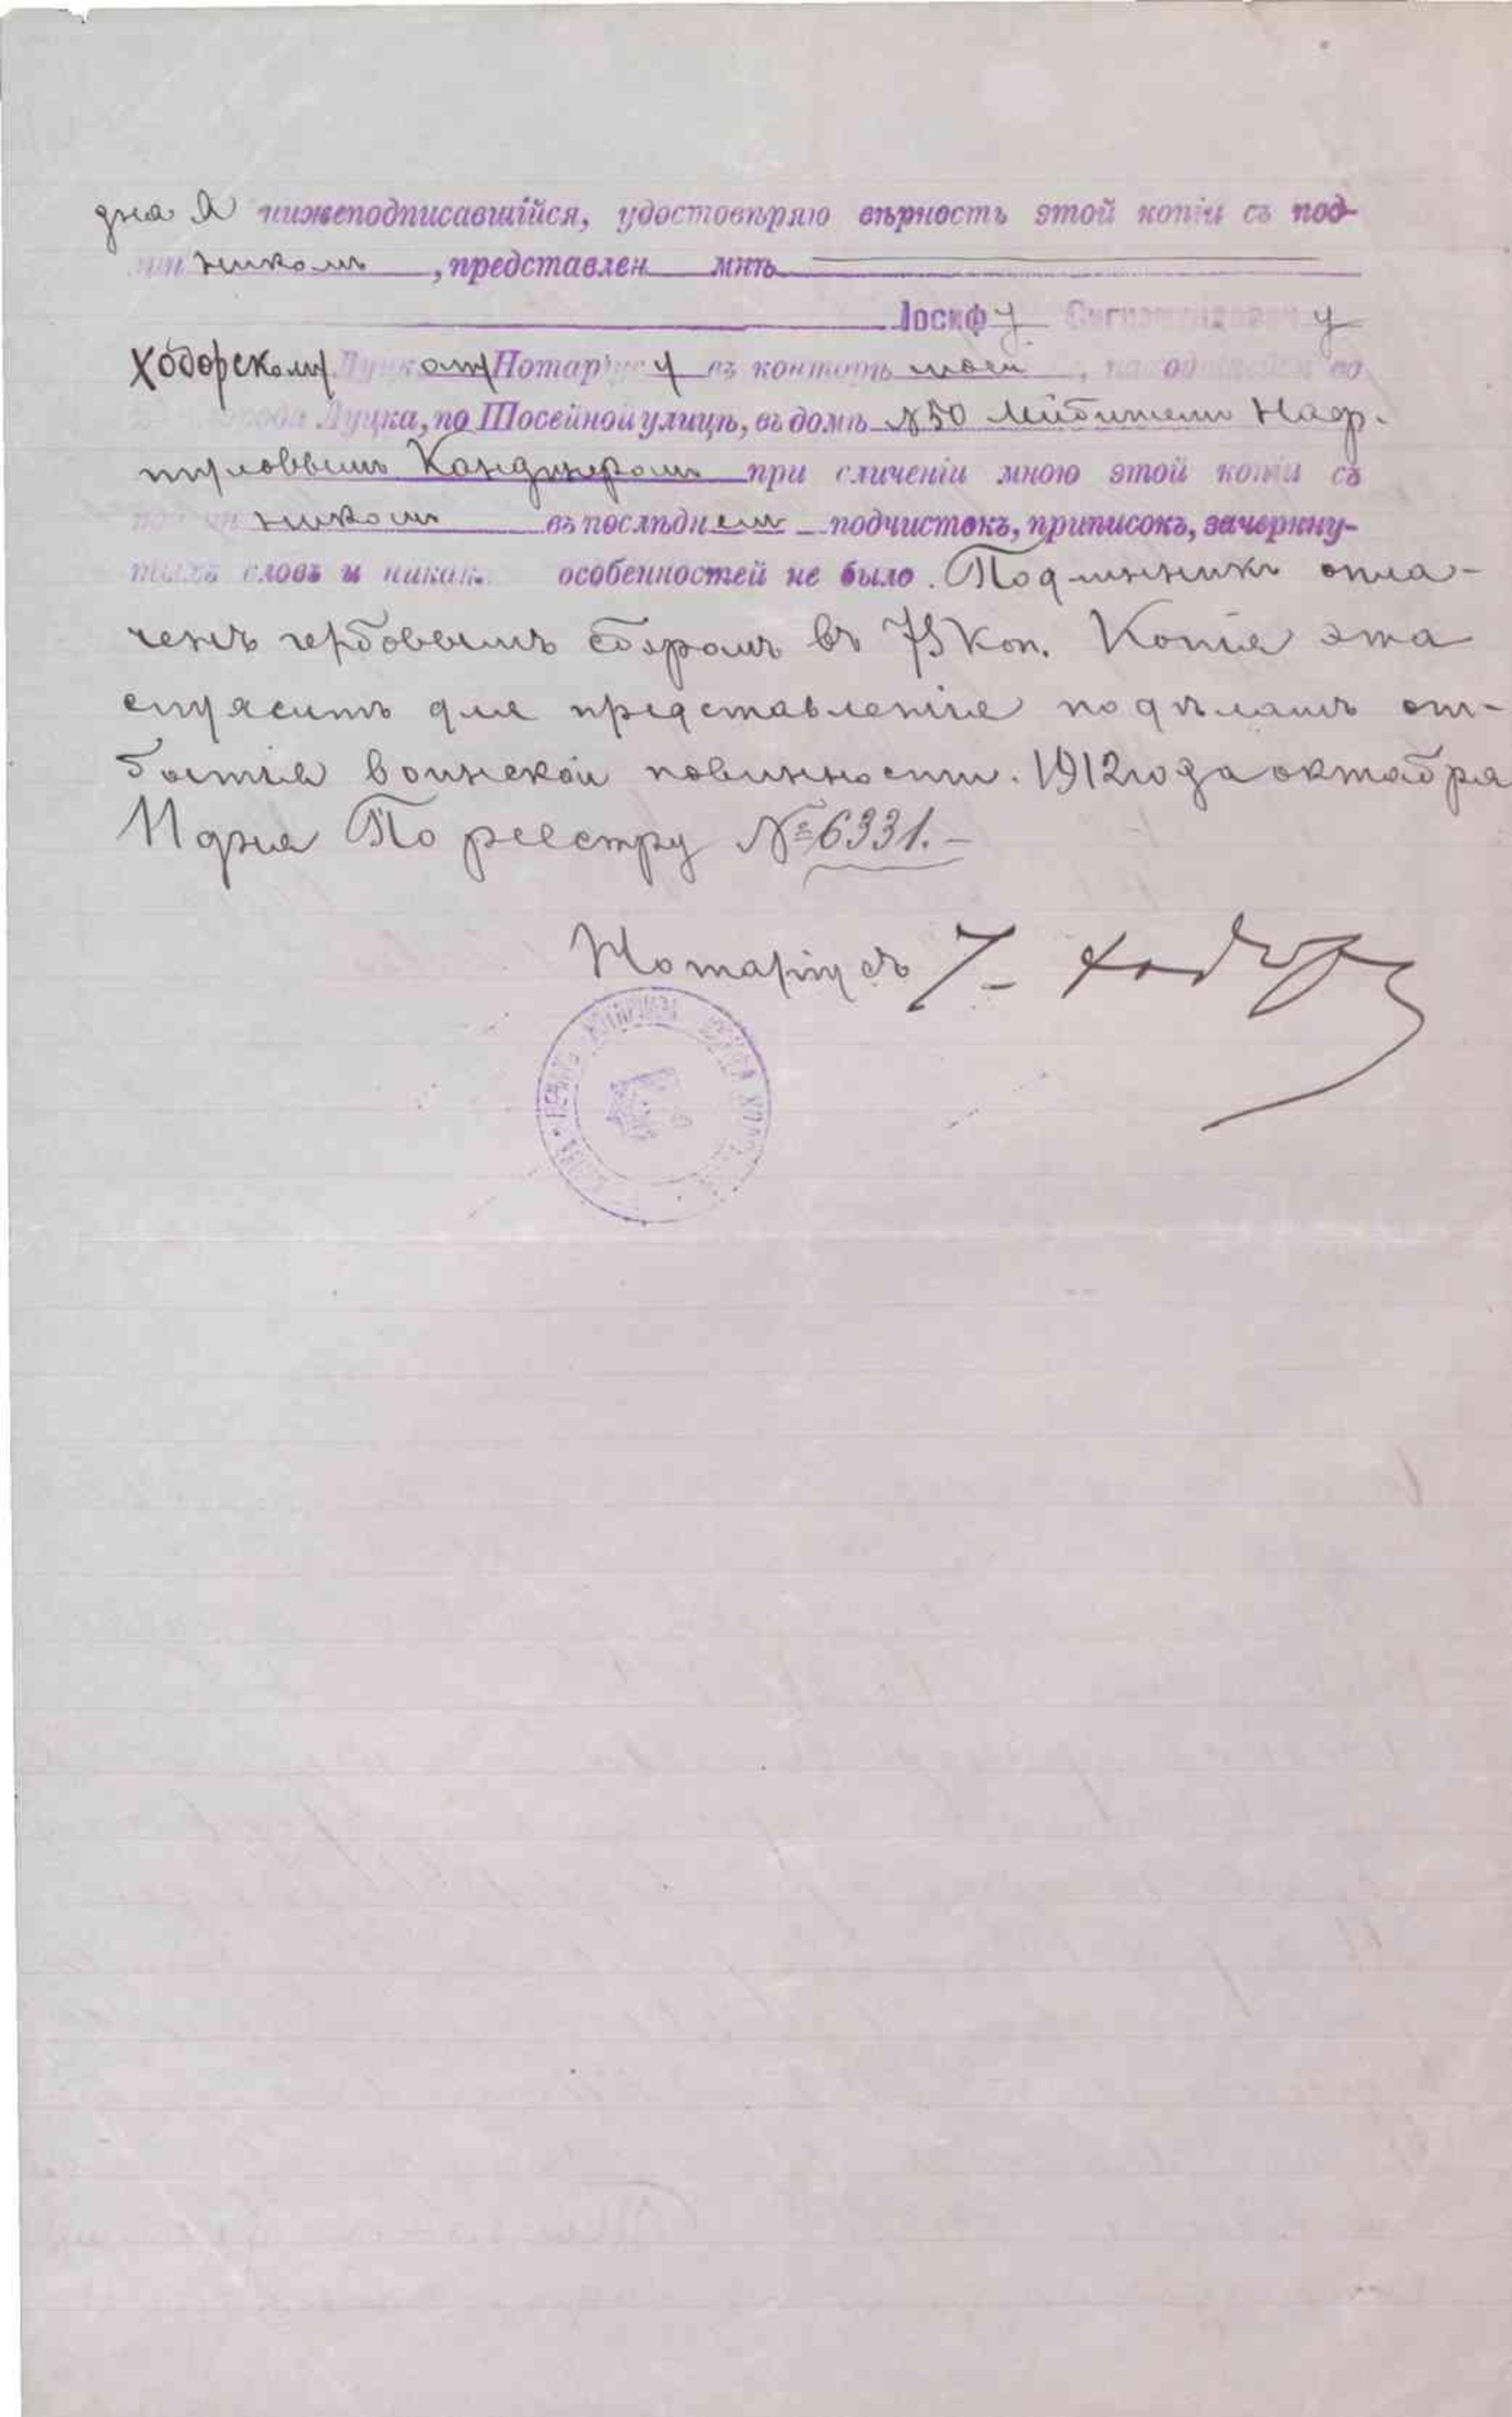 дня Я нижеподписавшійся, удостовѣряю вѣрность этой копіи съ под-
линникомъ, представлен мнѣ
Іосифу Сигизмундовичу
Ходорскому Луцкому Нотаріусу въ конторѣ моей, находящейся во
города Луцка, по Шосейной улицѣ, въ домѣ №50 Лейбишемъ Наф-
туловымъ Кандинеромъ при сличеніи мною этой копіи съ
подлинникомъ въ послѣднемъ подчистокъ, приписокъ, зачеркну-
тыхъ словъ и никак. особенностей не было. Подлинникъ опла-
ченъ гербовымъ сборомъ въ 75 коп. Копія эта
служитъ для представленія по дѣламъ от-
бытія воинской повинности. 1912 года октября
11 дня По реестру №6331.-
Нотаріусъ І. Ходорскій
НОТАРІУСЪ ІОСИФЪ ХОДОРСКІЙ